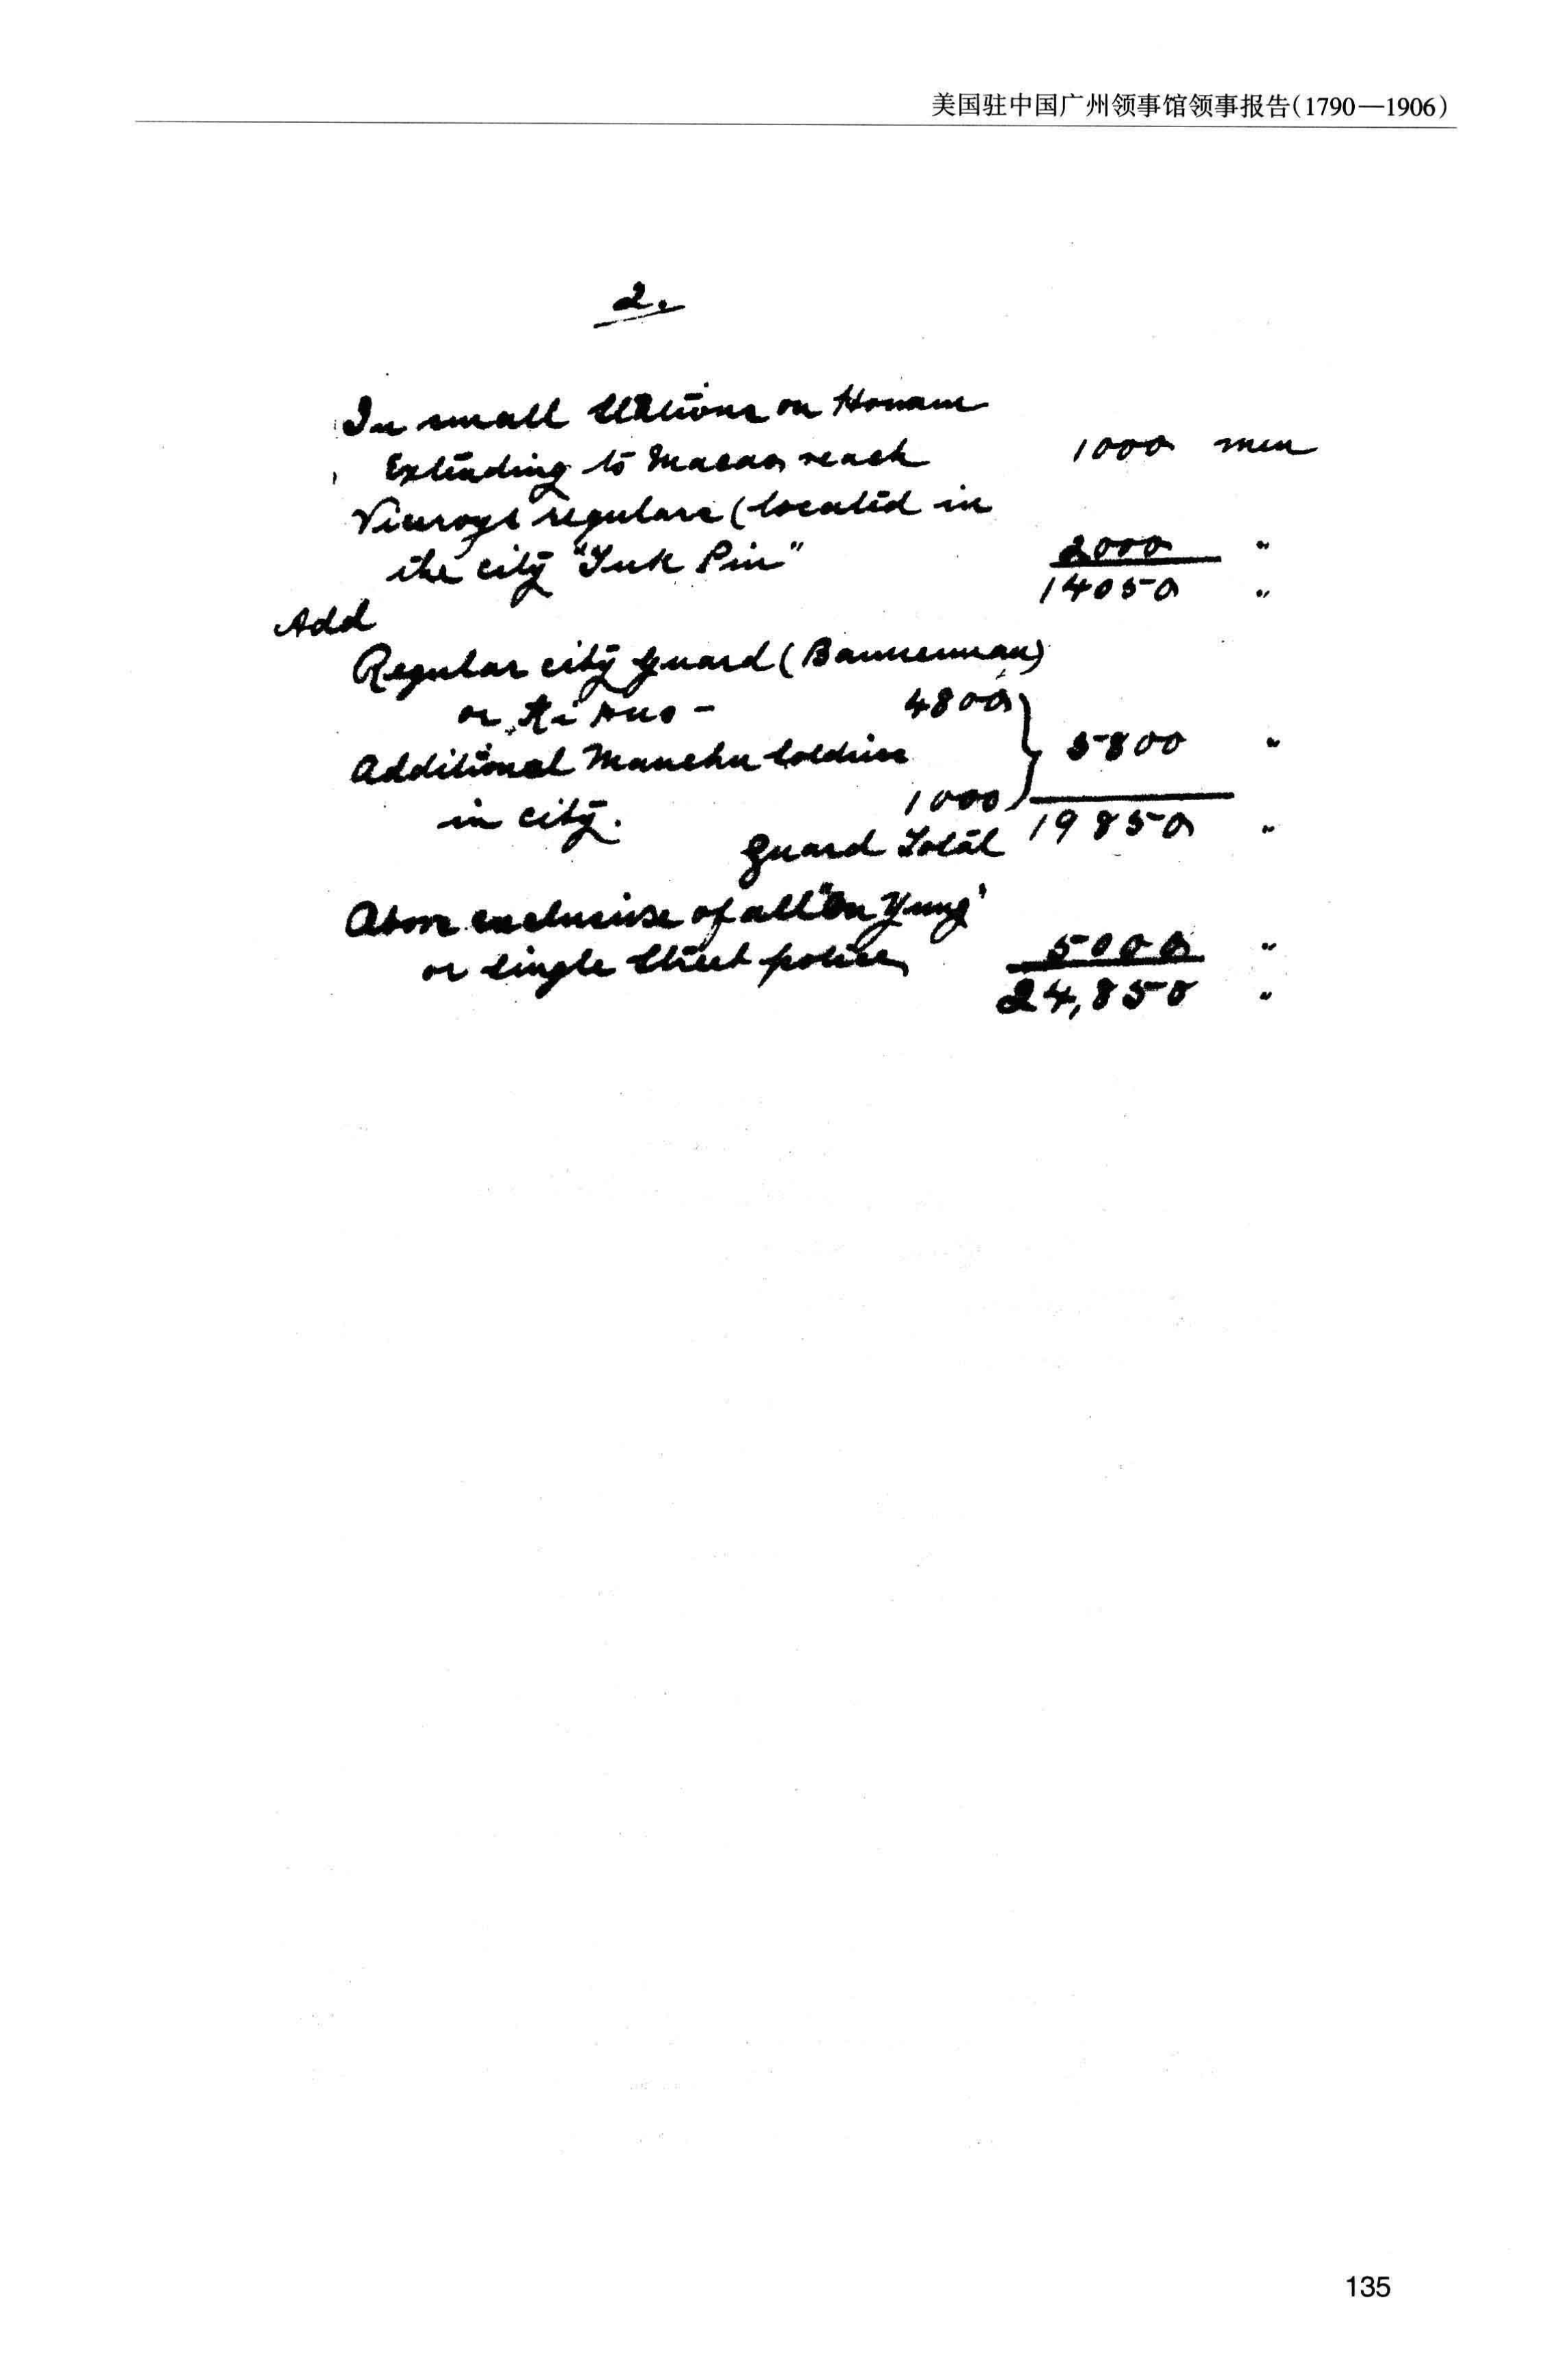 美国驻中国广州领事馆领事报告(1790—1906)
2.
In small stations on Honam
Extending to Macao reach 1000 men
Viceroys regulars (located in
the city "Tuk Pin" 2000 "
14050 "
Add
Regular city guard (Bannerman)
or 4800
5800 "
Additional Manchu soldiers
in city. 1000
Guard Total 19850 "
Above exclusive of all "On Yung"
or single street police 5000 "
24,850 "
135